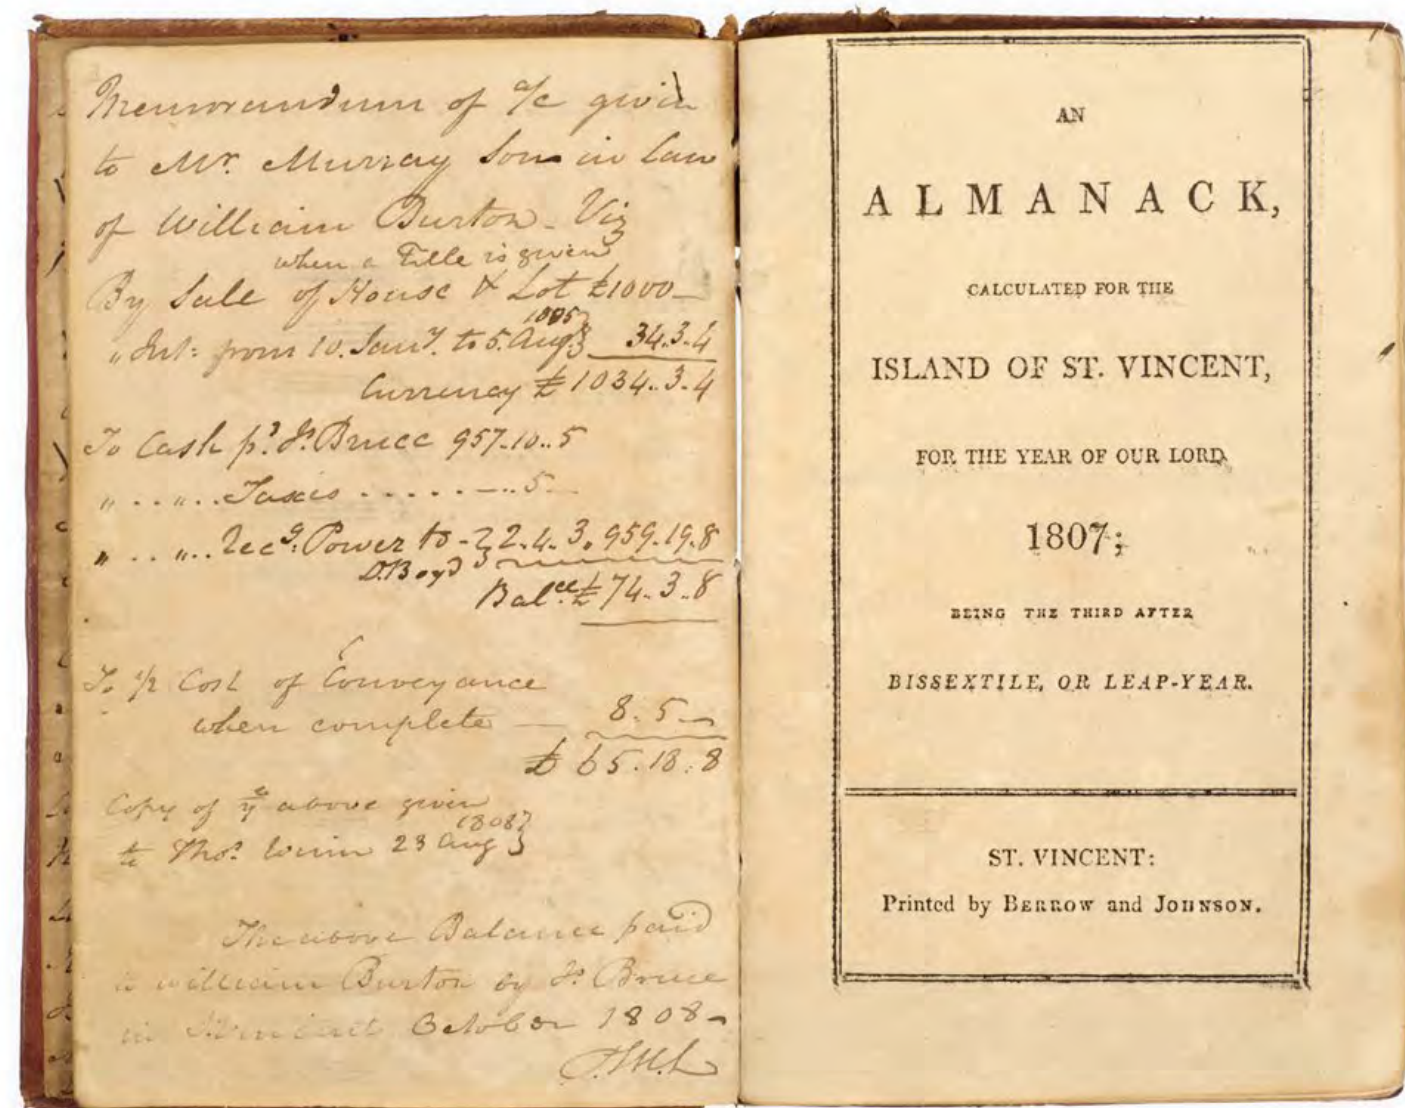 Memorandum of a/c given
to Mr. Murray Son in law
of William Burton - Viz
when a Title is given
By Sale of House & Lot £1000 —
1805
" Int: from 10. Jany. to 5. Augt. } 34.3.4
Currency £ 1034..3.4
To Cash pd. Js. Bruce 957.10..5
" .. " .. Taxes . . . . . — .. 5. —
" .. " .. Recg. Power to - } 2.4.3. 959.19.8
D. Boyd
Balce. £ 74..3..8
To 1/2 Cost of Conveyance
when complete — 8.5 —
£ 65.18.8
Copy of ye above given
1808 }
to Thos. Winn 23 Aug
The above Balance paid
to William Burton by Js. Bruce
in October 1808 -
AN
ALMANACK,
CALCULATED FOR THE
ISLAND OF ST. VINCENT,
FOR THE YEAR OF OUR LORD
1807;
BEING THE THIRD AFTER
BISSEXTILE, OR LEAP-YEAR.
ST. VINCENT:
Printed by BERROW and JOHNSON.